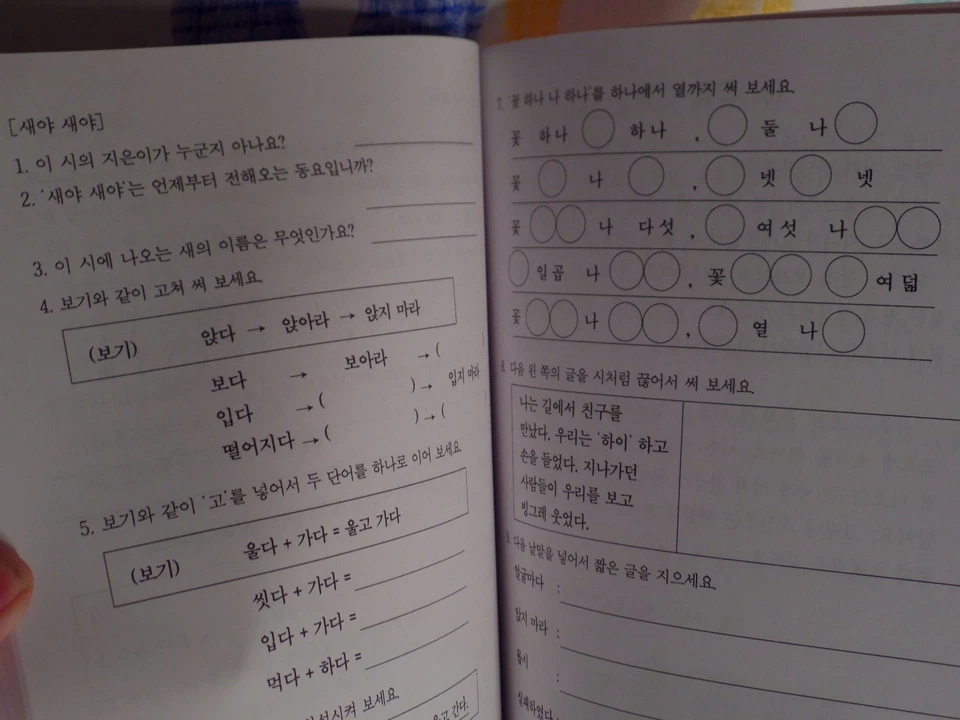 [새야 새야]
1. 이 시의 지은이가 누군지 아나요?
2. '새야 새야'는 언제부터 전해오는 동요입니까?
3. 이 시에 나오는 새의 이름은 무엇인가요?
4. 보기와 같이 고쳐 써 보세요.
(보기) 앉다 → 앉아라 → 앉지 마라
보다 → 보아라 → (
입다 → ( ) → 입지 마라
떨어지다 → ( ) → (
5. 보기와 같이 '고'를 넣어서 두 단어를 하나로 이어 보세요
(보기) 울다 + 가다 = 울고 가다
씻다 + 가다 =
입다 + 가다 =
먹다 + 하다 =
시켜 보세요.
울고 간다.
7. '꽃 하나 나 하나'를 하나에서 열까지 써 보세요.
꽃 하나 ○ 하나 , ○ 둘 나 ○
꽃 ○ 나 ○ , ○ 넷 ○ 넷
꽃 ○○ 나 다섯 , ○ 여섯 나 ○○
○ 일곱 나 ○○ , 꽃 ○○ ○ 여덟
꽃 ○○ 나 ○○ , ○ 열 나 ○
8. 다음 왼 쪽의 글을 시처럼 끊어서 써 보세요.
나는 길에서 친구를
만났다. 우리는 '하이' 하고
손을 들었다. 지나가던
사람들이 우리를 보고
빙그레 웃었다.
9. 다음 낱말을 넣어서 짧은 글을 지으세요.
얼굴마다 :
앉지 마라 :
몹시 :
실패하였다 :